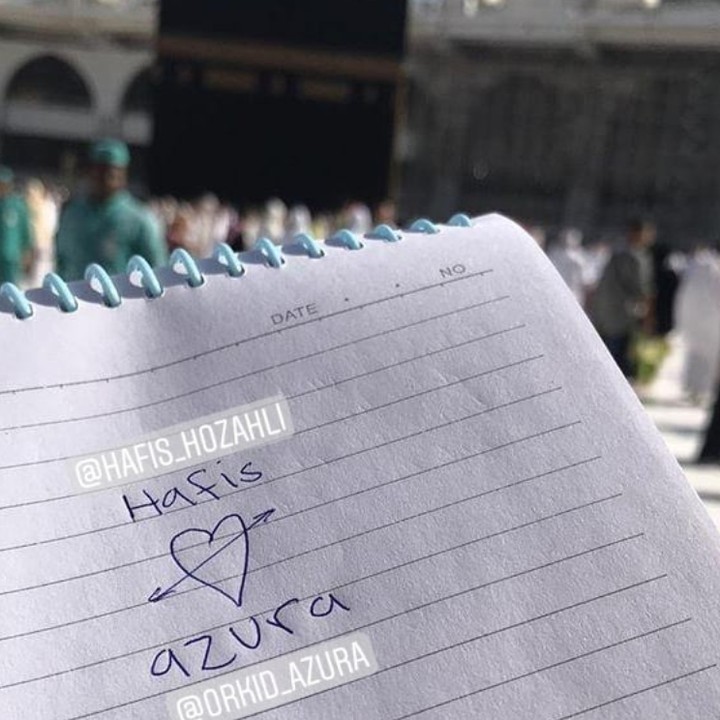 DATE . . NO
@HAFIS_HOZAHLI
Hafis
azura
@ORKID_AZURA